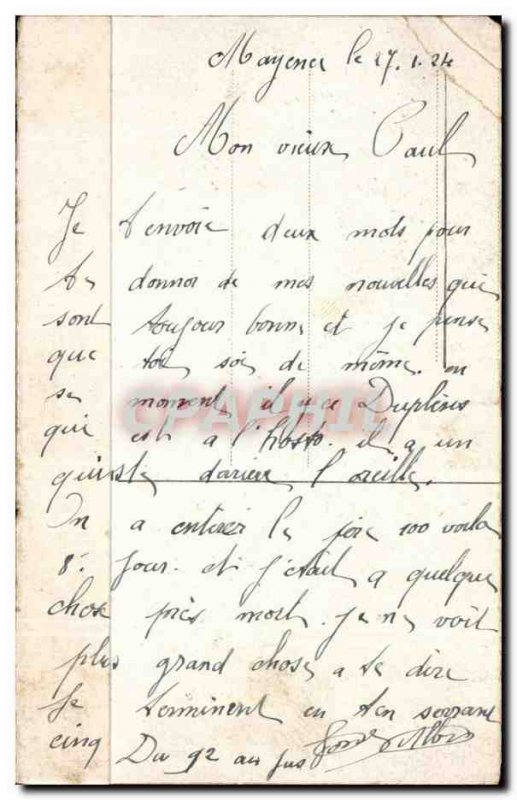 Mayence le 27.1.24
Mon vieux Paul
Je t envoie deux mots pour
te donner de mes nouvelles qui
sont toujour bonne et je pense
que toi soi de même. en
se moment il y a ce Duplessis
qui est a l'hosto. il a un
quiste darriere l'oreille.
On a enterer le père 100 voila
8. jour. et j'etait a quelque
chose près mort. je ne voit
plus grand chose a te dire
Je terminent en t'en serrant
cinq
Du 92 au jus
CPAPHIL